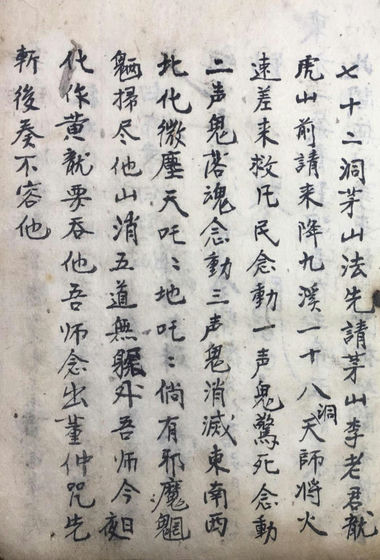 七十二洞茅山法先請茅山李老君龍
虎山前請来降九溪一十八洞天師将火
速差来救凡民念動一声鬼驚死念動
二声鬼落魂念動三声鬼消滅東南西
北化微塵天吒〻地吒〻倘有邪魔魍
魎掃尽他山消五道無外吾师今日夜
化作黄龍要吞他吾师念出董仲咒先
斬後奏不容他